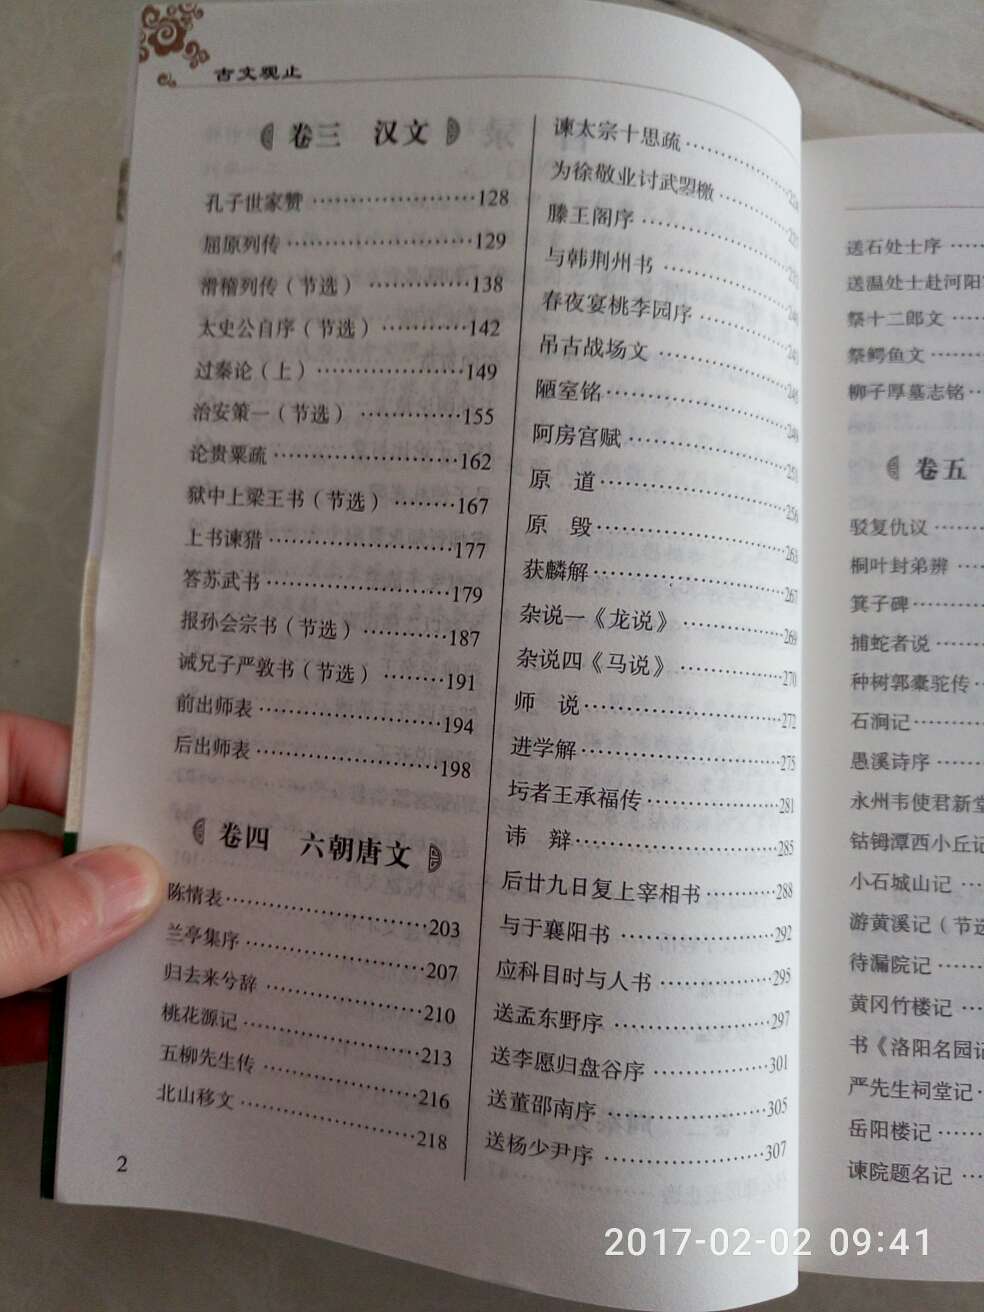 古文观止
卷三 汉文
孔子世家赞 …………………128
屈原列传 …………………129
滑稽列传（节选） …………138
太史公自序（节选） …………142
过秦论（上） …………………149
治安策一（节选） …………155
论贵粟疏 …………………162
狱中上梁王书（节选） ………167
上书谏猎 …………………177
答苏武书 …………………179
报孙会宗书（节选） …………187
诫兄子严敦书（节选） ………191
前出师表 …………………194
后出师表 …………………198
卷四 六朝唐文
陈情表 …………………203
兰亭集序 …………………207
归去来兮辞 …………………210
桃花源记 …………………213
五柳先生传 …………………216
北山移文 …………………218
2
谏太宗十思疏 …………
为徐敬业讨武曌檄 …………
滕王阁序 …………
与韩荆州书 …………
春夜宴桃李园序 …………
吊古战场文 …………
陋室铭 …………
阿房宫赋 …………
原 道 …………256
原 毁 …………263
获麟解 …………267
杂说一《龙说》 …………269
杂说四《马说》 …………270
师 说 …………272
进学解 …………275
圬者王承福传 …………281
讳 辩 …………285
后廿九日复上宰相书 …………288
与于襄阳书 …………292
应科目时与人书 …………295
送孟东野序 …………297
送李愿归盘谷序 …………301
送董邵南序 …………305
送杨少尹序 …………307
送石处士序 ……
送温处士赴河阳
祭十二郎文 ……
祭鳄鱼文 ……
柳子厚墓志铭 ……
卷五
驳复仇议 ……
桐叶封弟辨 ……
箕子碑 ……
捕蛇者说 ……
种树郭橐驼传 ……
石涧记 ……
愚溪诗序 ……
永州韦使君新堂
钴鉧潭西小丘记
小石城山记 ……
游黄溪记（节选
待漏院记 ……
黄冈竹楼记 ……
书《洛阳名园记
严先生祠堂记 ……
岳阳楼记 ……
谏院题名记 ……
2017-02-02 09:41